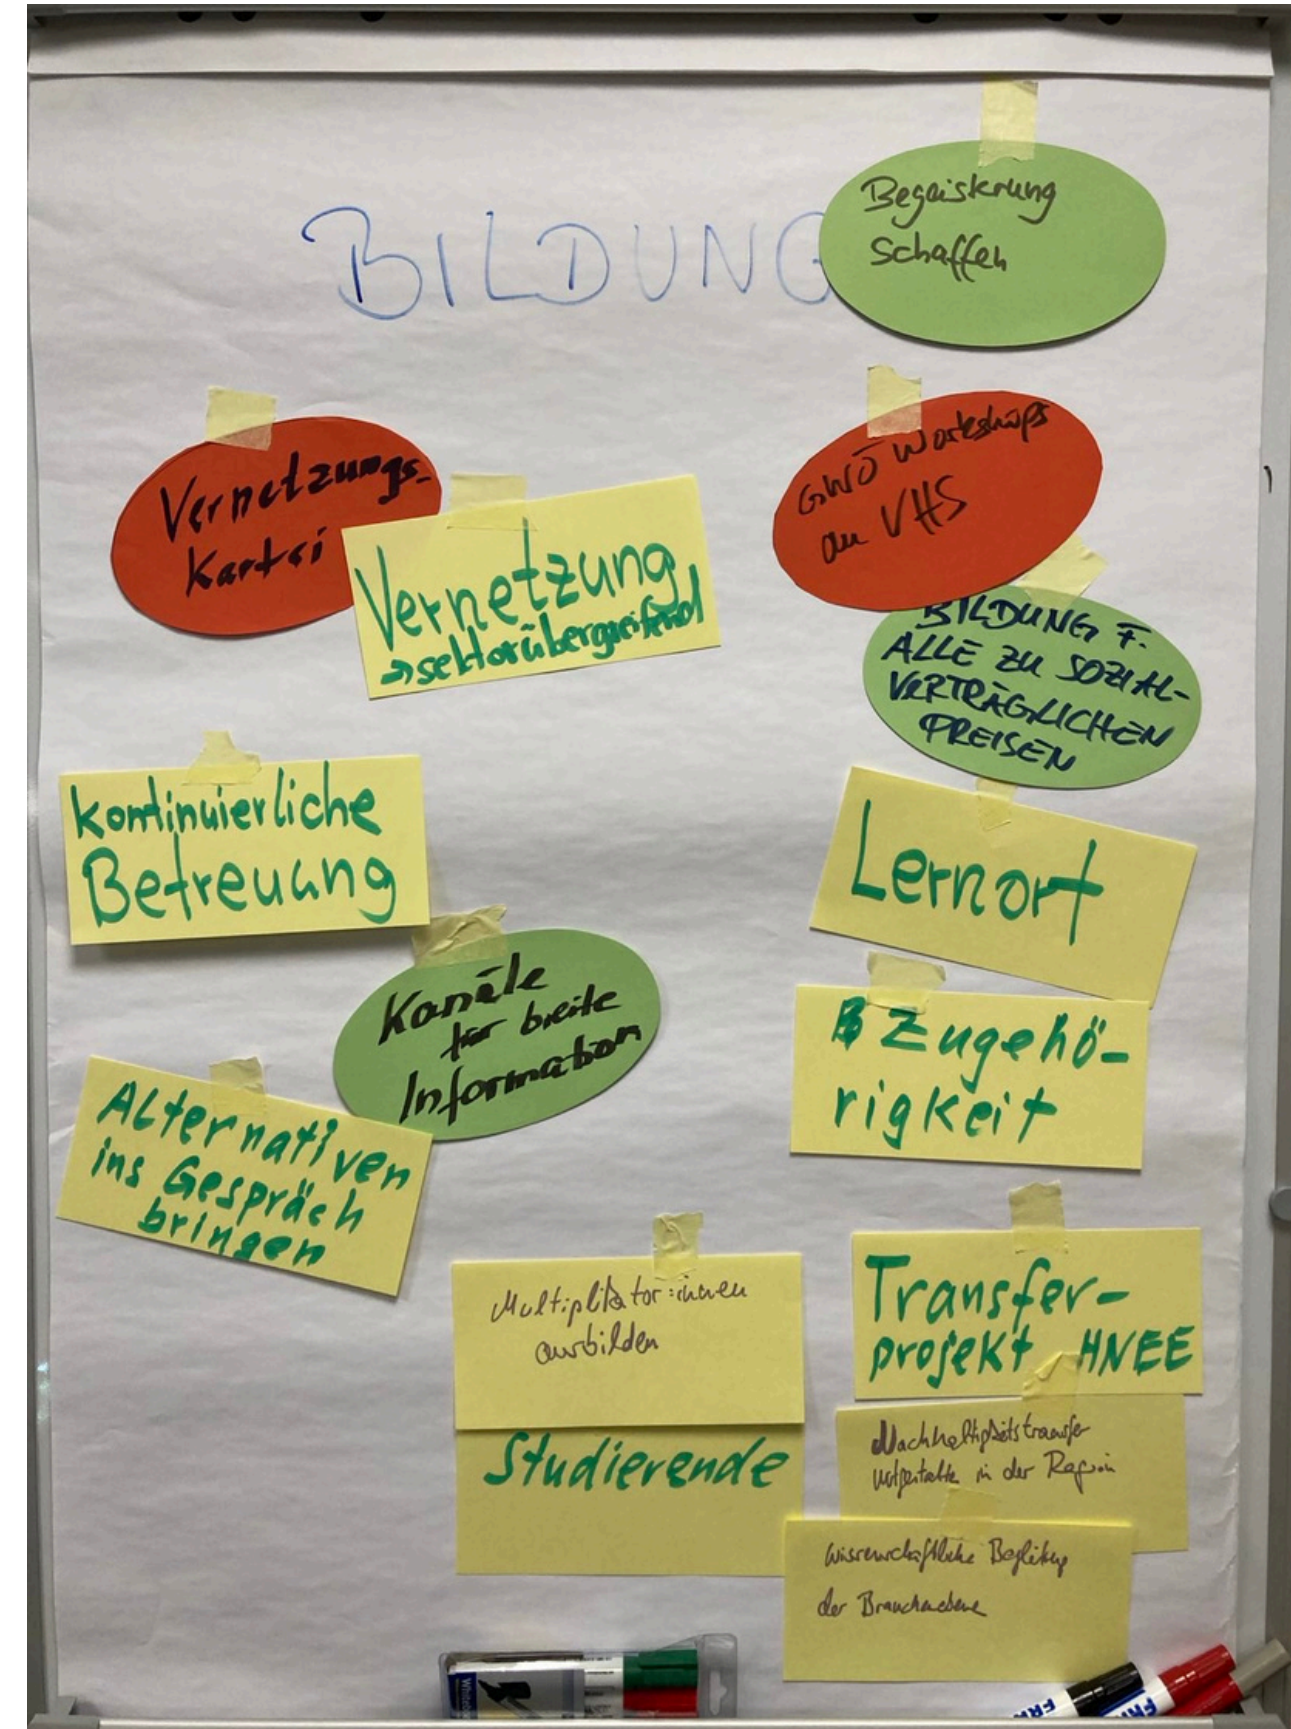 BILDUNG
Begeisterung
schaffen
Vernetzungs-
Kartei
Vernetzung
→ sektorübergreifend
GWÖ Workshops
an VHS
BILDUNG F.
ALLE ZU SOZIAL-
VERTRÄGLICHEN
PREISEN
kontinuierliche
Betreuung
Lernort
Kanäle
für breite
Information
Zugehö-
rigkeit
Alternativen
ins Gespräch
bringen
Multiplikator:innen
ausbilden
Studierende
Transfer-
projekt HNEE
Nachhaltigkeitstransfer
in der Region
wissenschaftliche Begleitung
der Branchenebene